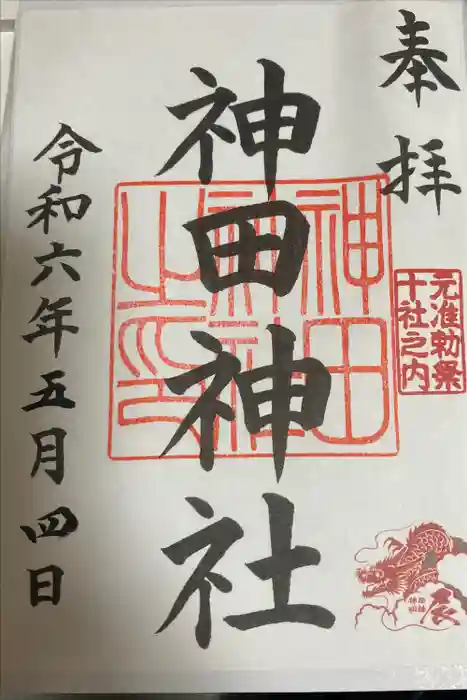 奉拝
元准勅祭
十社之内
神田神社
神田
神社
之印
令和六年五月四日
辰